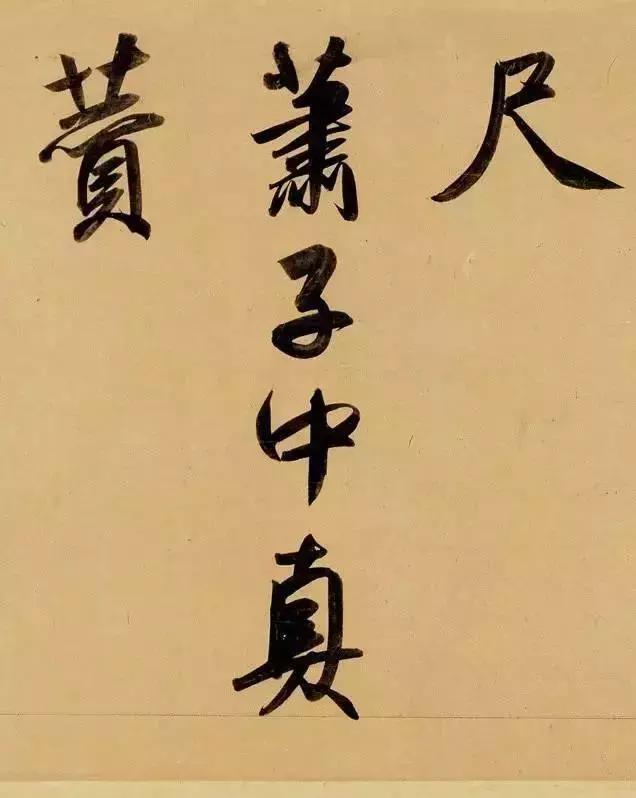 尺
蕭子中真
贊